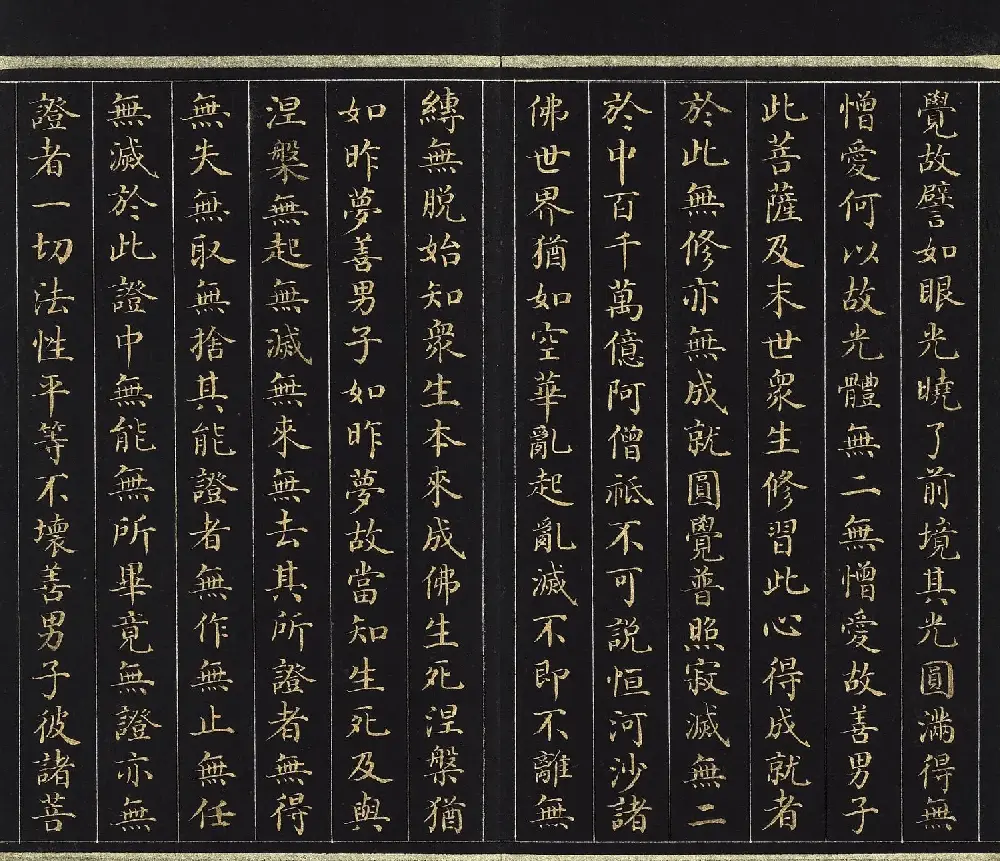 覺故譬如眼光曉了前境其光圓滿得無
憎愛何以故光體無二無憎愛故善男子
此菩薩及末世衆生修習此心得成就者
於此無修亦無成就圓覺普照寂滅無二
於中百千萬億阿僧祇不可說恒河沙諸
佛世界猶如空華亂起亂滅不即不離無
縛無脱始知衆生本來成佛生死涅槃猶
如昨夢善男子如昨夢故當知生死及與
涅槃無起無滅無來無去其所證者無得
無失無取無捨其能證者無作無止無任
無滅於此證中無能無所畢竟無證亦無
證者一切法性平等不壞善男子彼諸菩